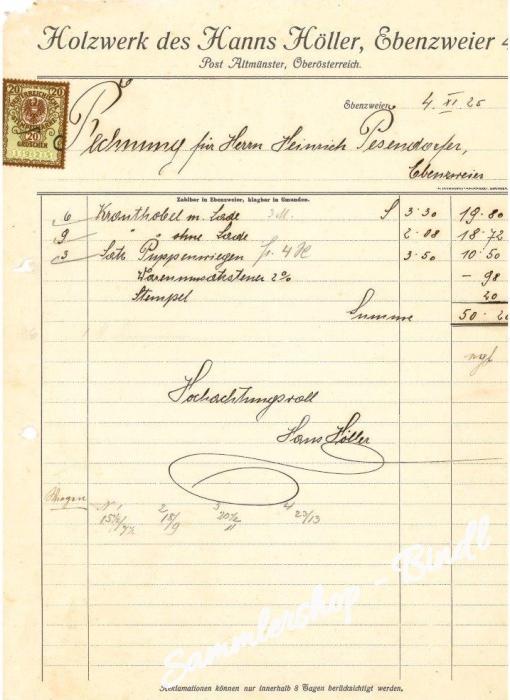 Holzwerk des Hanns Höller, Ebenzweier 4
Post Altmünster, Oberösterreich.
20 20
20
GROSCHEN
1925
Ebenzweier, 4. XI. 25
Rechnung für Herrn Heinrich Pesendorfer,
Ebenzweier
Zahlbar in Ebenzweier, klagbar in Gmunden.
6 Krauthobel m. Lade S 3·30 19·80
9 " " ohne Lade 2·08 18·72
3 Satz Puppenwiegen 3·50 10·50
Warenumsatzsteuer 2% – 98
Stempel 20
Summe 50·20
Hochachtungsvoll
Hans Höller
Wiegen
Reklamationen können nur innerhalb 8 Tagen berücksichtigt werden.
Sammlershop - Bindl